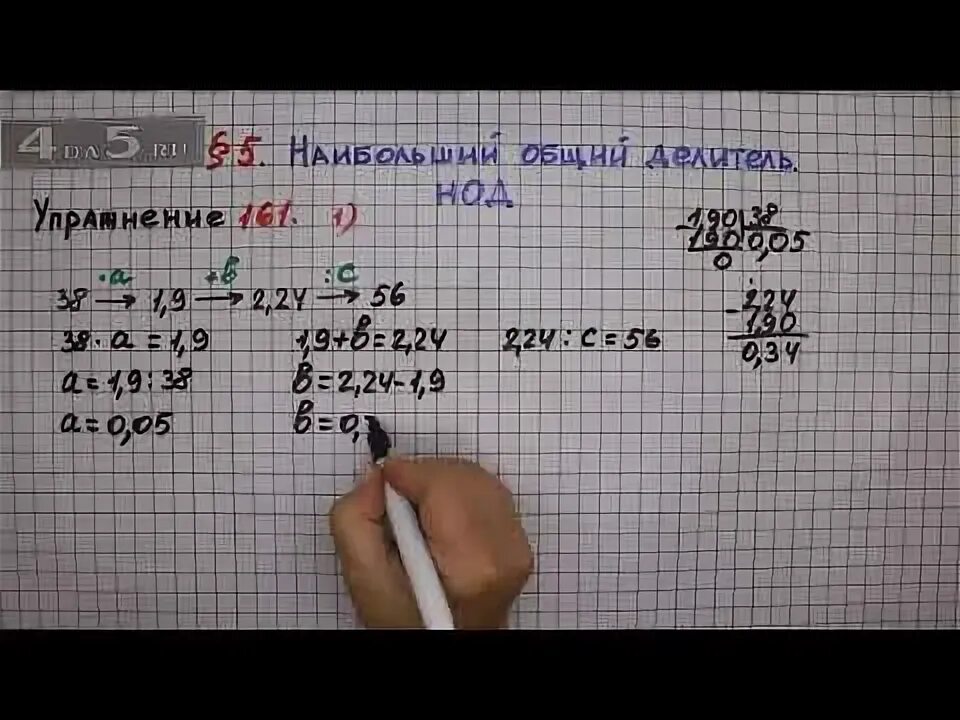 4 на 5.RU § 5. Наибольший общий делитель.
НОД
Упражнение 161. 1)
1,90 38
- 190 0,05
0
·a +b :c
38 → 1,9 → 2,24 → 56
38 · a = 1,9 1,9 + b = 2,24 2,24 : c = 56
a = 1,9 : 38 b = 2,24 - 1,9
a = 0,05 b = 0,
- 2,24
1,90
0,34